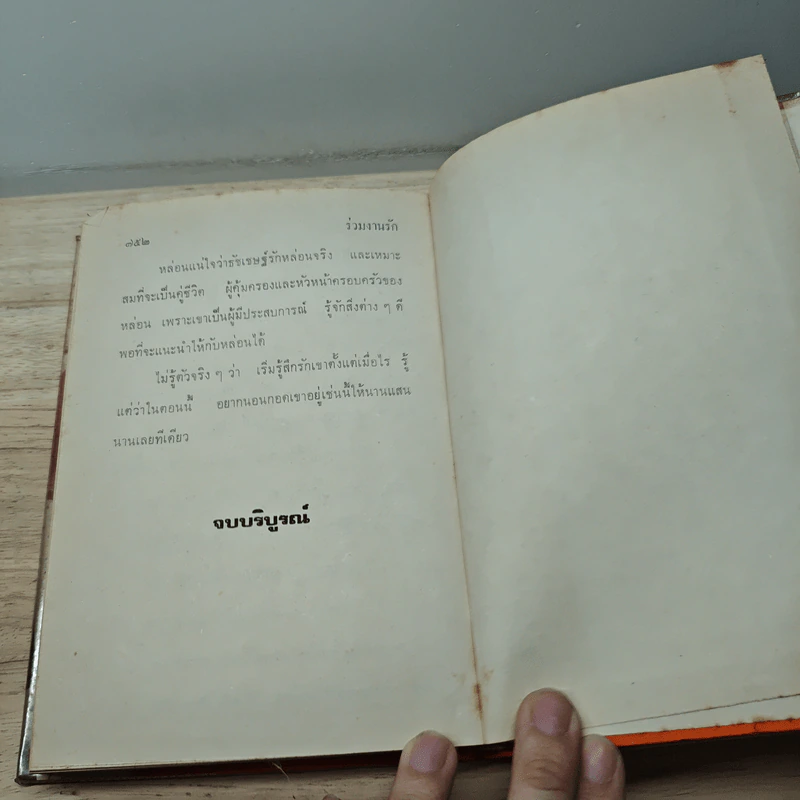 ๗๕๒
ร่วมงานรัก
หล่อนแน่ใจว่าธัชเชษฐ์รักหล่อนจริง และเหมาะ
สมที่จะเป็นคู่ชีวิต ผู้คุ้มครองและหัวหน้าครอบครัวของ
หล่อน เพราะเขาเป็นผู้มีประสบการณ์ รู้จักสิ่งต่าง ๆ ดี
พอที่จะแนะนำให้กับหล่อนได้
ไม่รู้ตัวจริง ๆ ว่า เริ่มรู้สึกรักเขาตั้งแต่เมื่อไร รู้
แต่ว่าในตอนนี้ อยากนอนกอดเขาอยู่เช่นนี้ให้นานแสน
นานเลยทีเดียว
จบบริบูรณ์